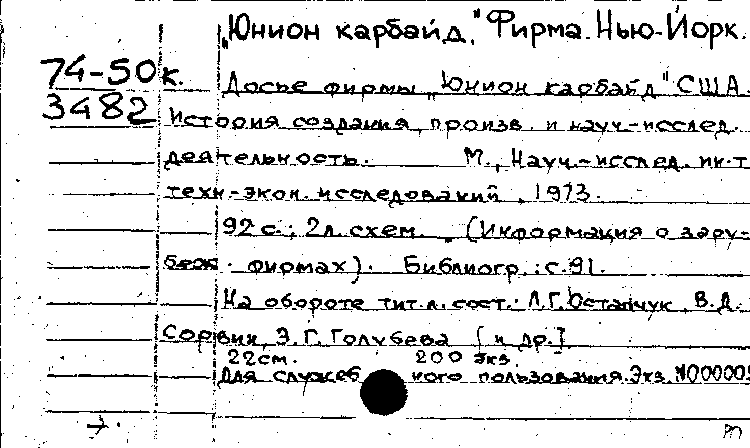 "Юнион карбайд," Фирма. Нью-Йорк.
74-50к.
3482
Досье фирмы "Юнион карбайд" США.
История создания, произв. и науч.-исслед.
деятельность. М., Науч.-исслед. ин-т
техн-экон. исследований, 1973.
92 с.; 2л. схем. (Информация о зару-
беж. фирмах). Библиогр.: с. 91.
На обороте тит. л. сост.: Л.Г. Остапчук, В.Д.
Сорвин, Э.Г. Голубева [и др.]
22см. 200 экз.
Для служеб ного пользования. Экз. N00000